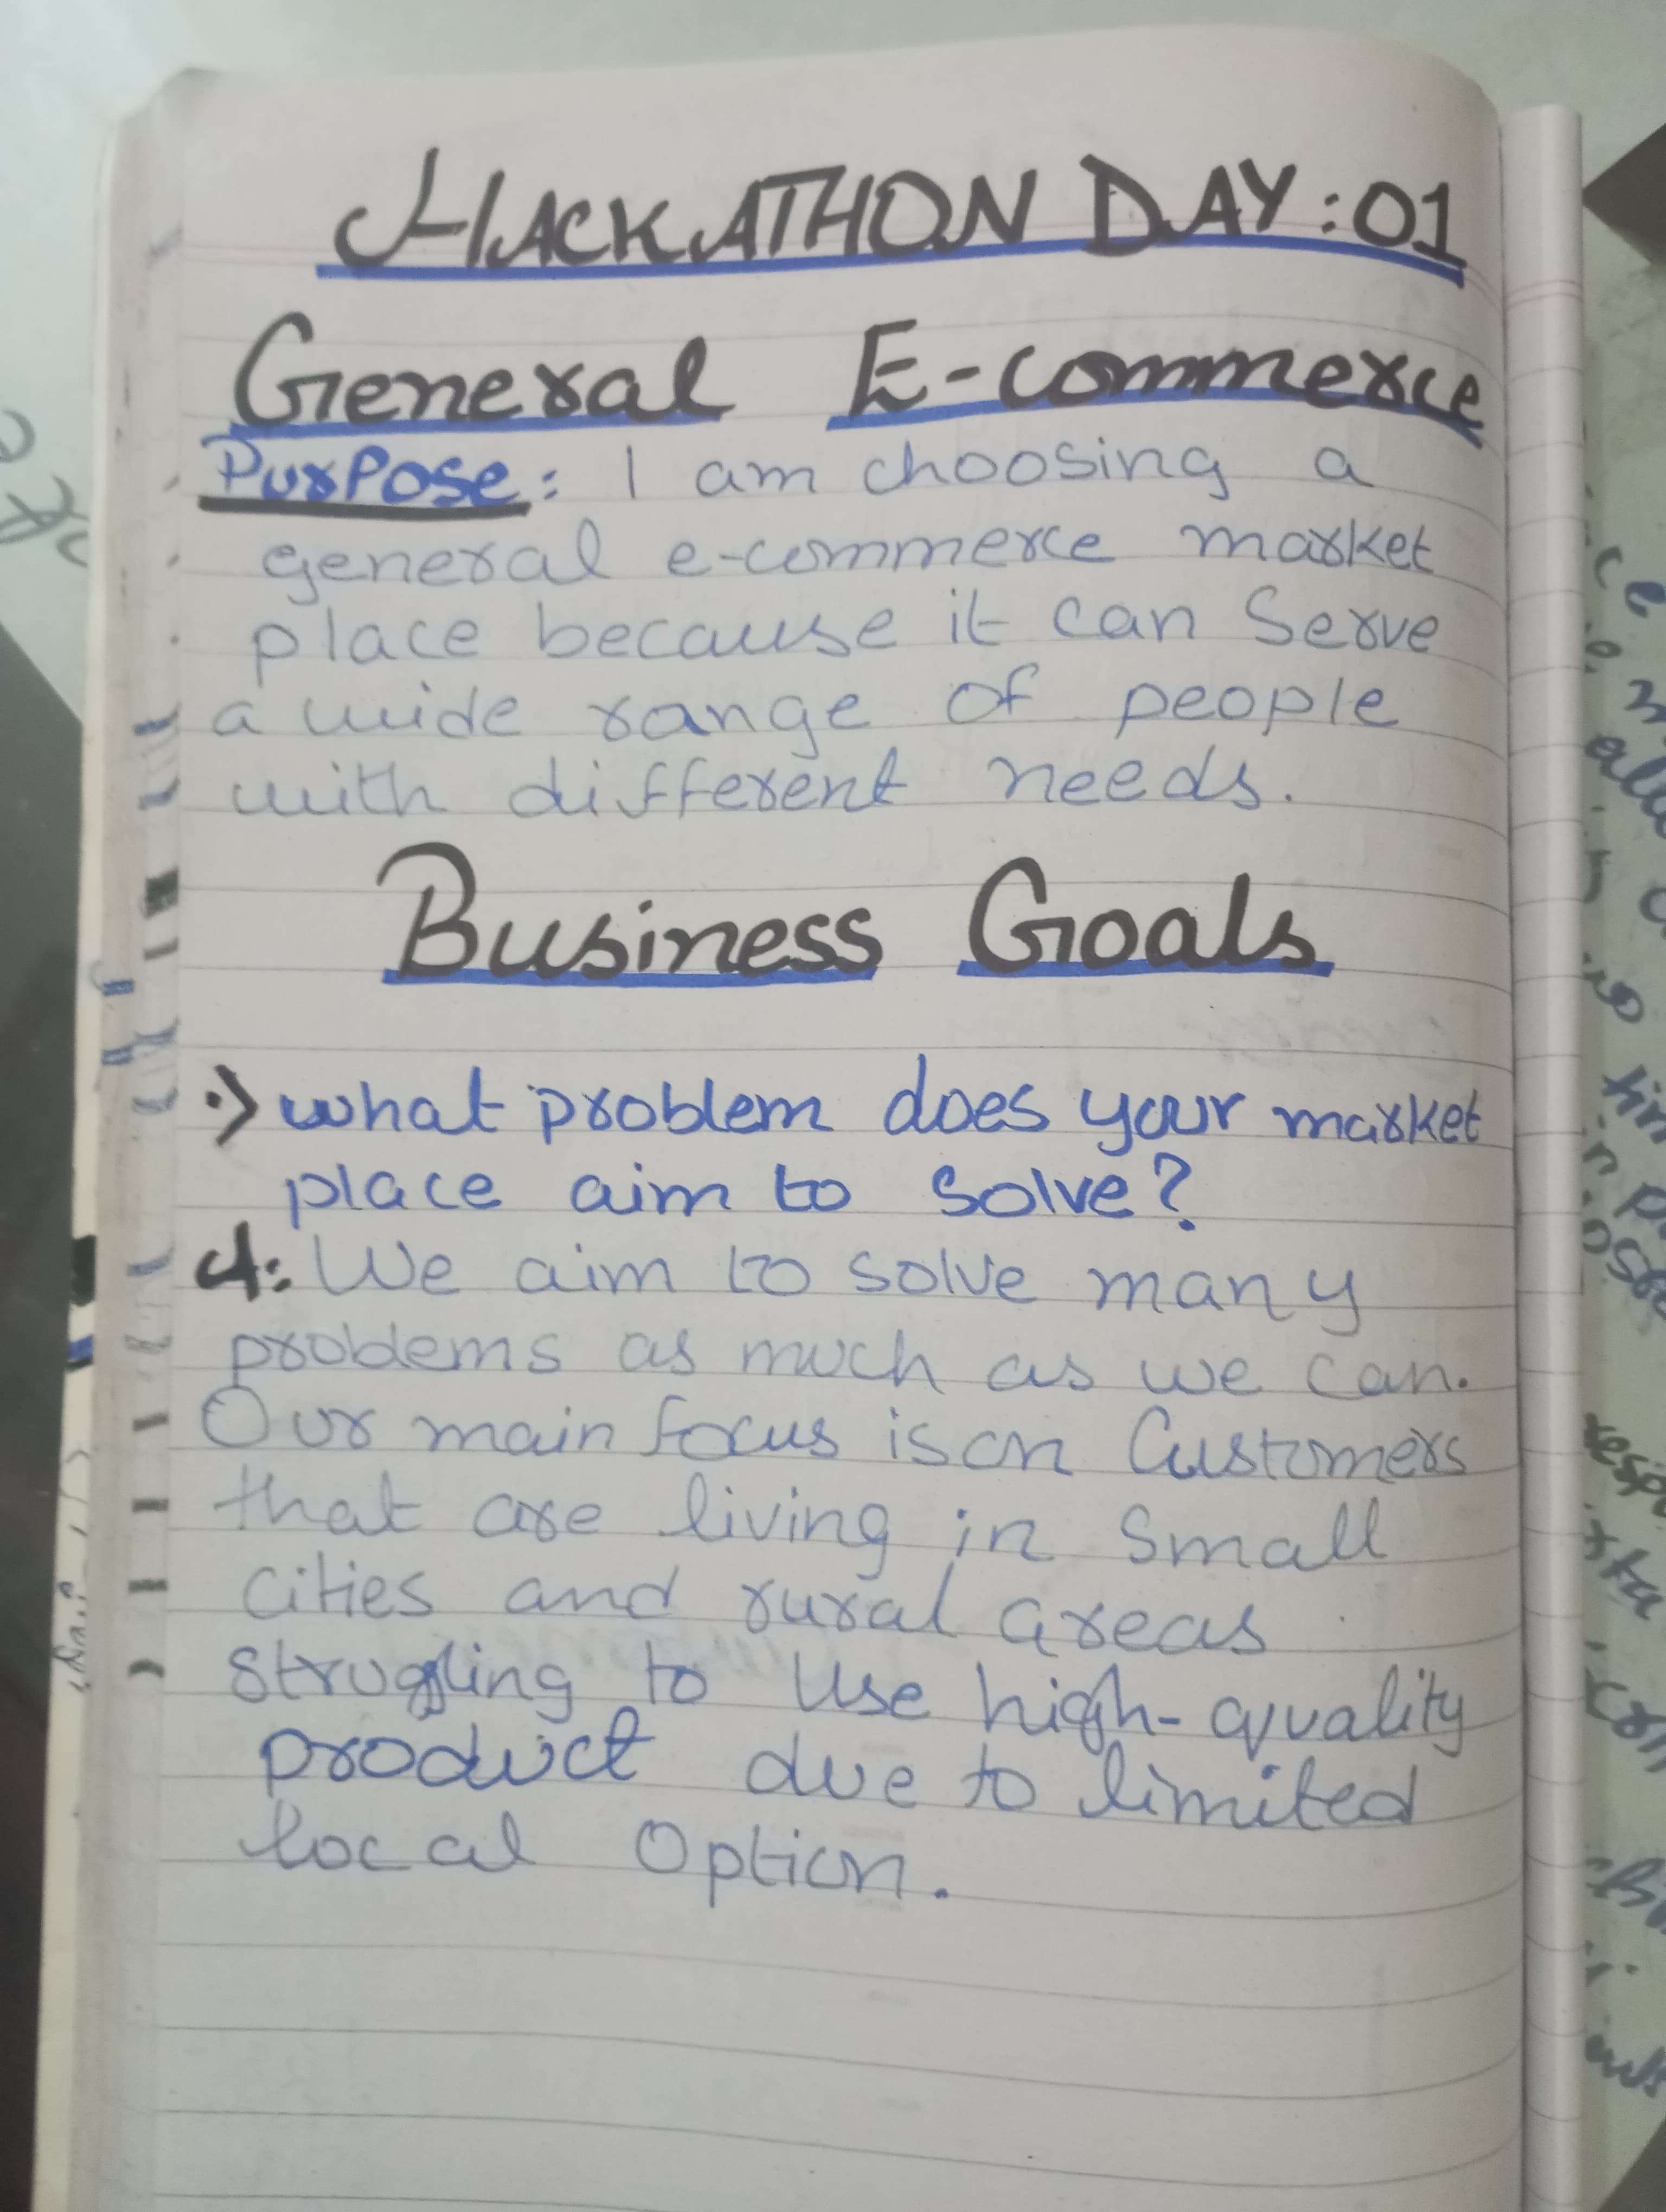 HACKATHON DAY:01
General E-commerce
Purpose: I am choosing a
general e-commerce market
place because it can Serve
a wide range of people
with different needs.
Business Goals
what problem does your market
place aim to solve?
We aim to solve many
problems as much as we can.
Our main focus is on Customers
that are living in Small
cities and rural areas
struggling to Use high-quality
product due to limited
local Option.